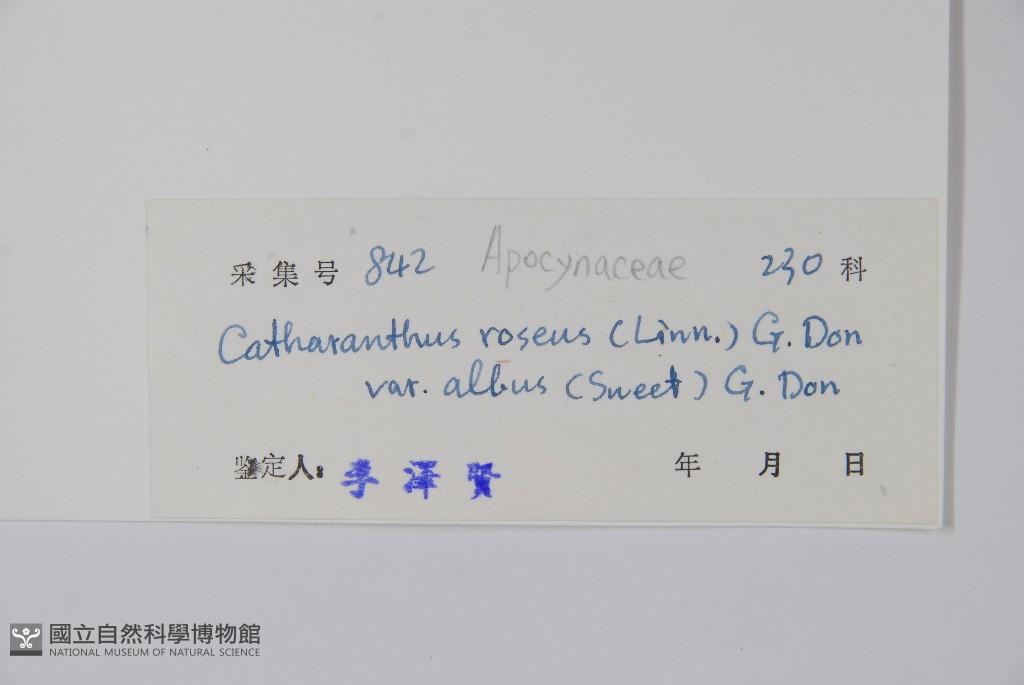 采集号 842 Apocynaceae 230 科
Catharanthus roseus (Linn.) G. Don
var. albus (Sweet) G. Don
鉴定人: 李澤賢 年 月 日
國立自然科學博物館
NATIONAL MUSEUM OF NATURAL SCIENCE